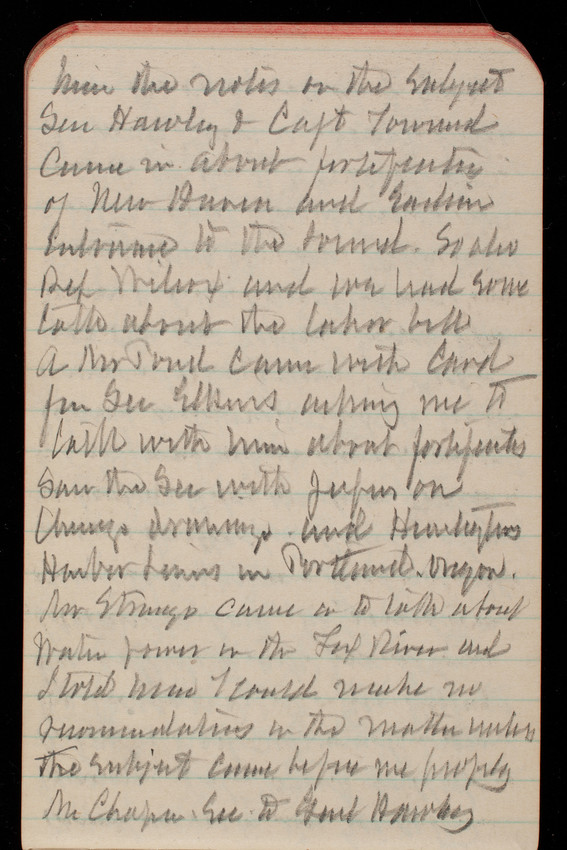 him the notes on the subject
Gen Hawley & Capt Townsend
Came in about fortifications
of New Haven and Eastern
Entrance to the Sound. So also
Rep Wilcox and we had some
talk about the labor bill
A Mr Pond came with Card
from Sec Elkins asking me to
talk with him about fortifications
Saw the Sec with on
Chicago drainage and Huntingtons
Harbor Lines in Portland. Oregon.
Mr Strange came in to talk about
Water power in the Fox River and
I told him I could make no
recommendations in the matter unless
the subject came before me properly
Mr Chapin. Sec to Genl Hawley